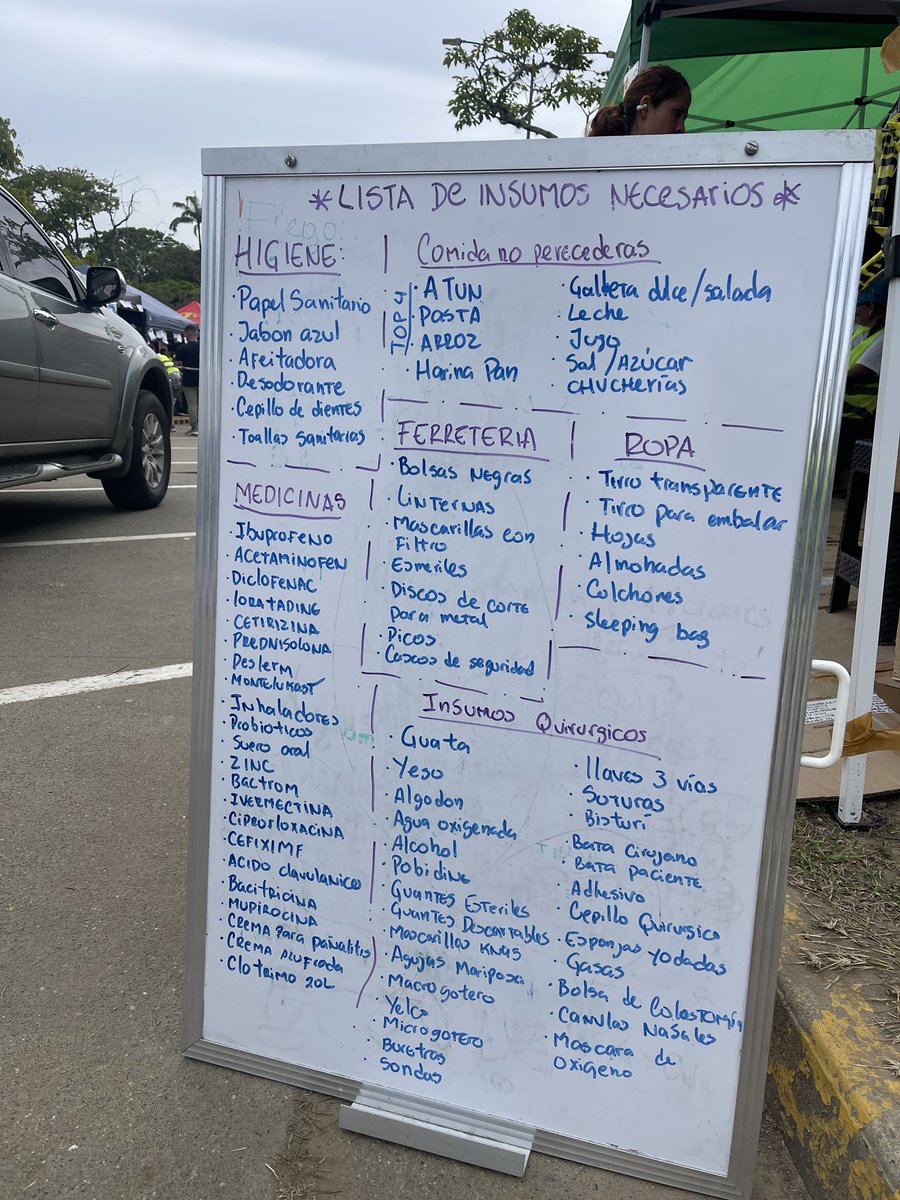 *LISTA DE INSUMOS NECESARIOS*
HIGIENE:
· Papel Sanitario
· Jabon azul
· Afeitadora
· Desodorante
· Cepillo de dientes
· Toallas sanitarias
Comida no perecederas
TOP J
· ATUN
· PASTA
· ARROZ
· Harina Pan
· Galleta dlce/salada
· Leche
· Jugo
· Sal/AZÚCAR
· CHUCHERÍAS
FERRETERIA
· Bolsas Negras
· LINTERNAS
· Mascarillas con
Filtro
· Esmeriles
· Discos de corte
para metal
· Picos
· Cascos de seguridad
ROPA
· Tirro transparente
· Tirro para embalar
· Hojas
· Almohadas
· Colchones
· Sleeping bag
MEDICINAS
· Ibuprofeno
· ACETAMINOFEN
· DICLOFENAC
· lORATADINE
· CETIRIZINA
· PREDNISOLONA
· Deslerm
· MONTELUKAST
· Inhaladores
· Probioticos
· Suero oral
· ZINC
· Bactrom
· IVERMECTINA
· CIPROFLOXACINA
· CEFIXIMF
· ACIDO clavulanico
· Bacitricina
· MUPIROCINA
· CREMA PARA pañalitis
· CREMA AZUFRADA
· Clotrimo ZOL
Insumos Quirurgicos
· Guata
· Yeso
· Algodon
· Agua oxigenada
· Alcohol
· Pobidine
· Guantes Esteriles
· Guantes Descartables
· Mascarillas KN95
· Agujas Mariposa
· Macrogotero
· Yelco
· Microgotero
· Buretras
· Sondas
· llaves 3 vías
· Suturas
· Bisturí
· Bata cirujano
· Bata paciente
· Adhesivo
· Cepillo Quirurgico
· Esponjas yodadas
· Gasas
· Bolsa de ColosTOMÍA
· CANULAS NASales
· Mascara de
oxigeno